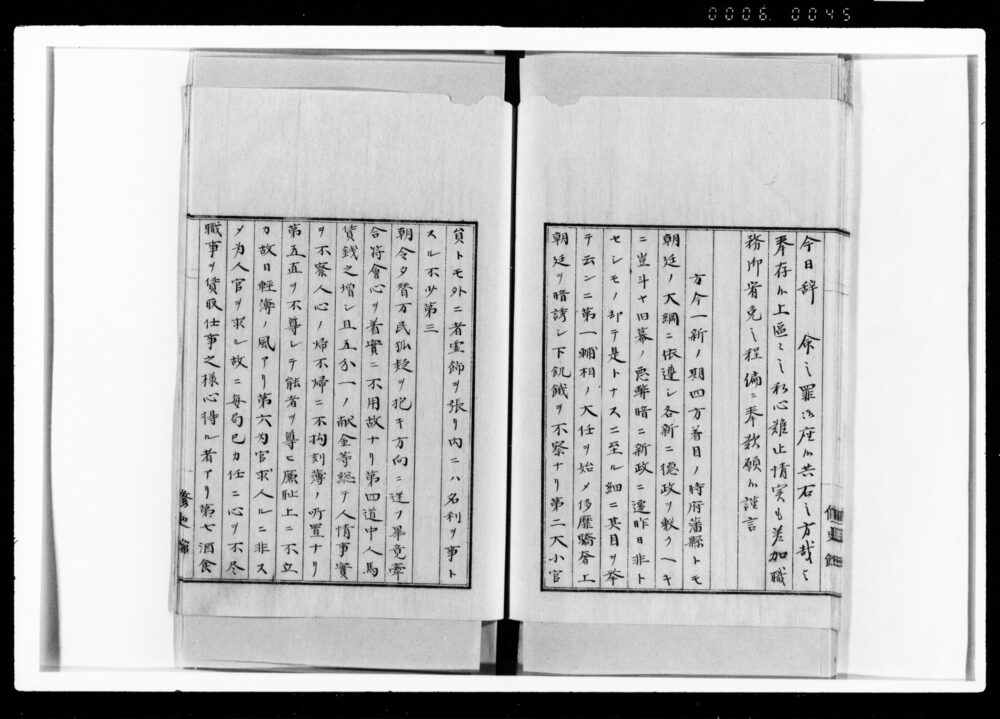 0006 0045
今日辞 命之罪御座候共右之方哉ニ
奉存候上區々之私心難止情実も差加職
務御宥免之程偏ニ奉歎願候謹言
方今一新ノ期四方着目ノ時府藩縣トモ
朝廷ノ大綱ニ依遵シ各新ニ德政ヲ敷クヘキ
ニ豈斗ヤ旧幕ノ悪弊暗ニ新政ニ遷昨日非ト
セシモノ却テ是トナスニ至ル細ニ其目ヲ挙
テ云ンニ第一輔相ノ大任ヲ始メ侈靡驕奢上
朝廷ヲ暗誘シ下飢餓ヲ不察ナリ第二大小官
貧トモ外ニ者虚飾ヲ張リ内ニハ名利ヲ事ト
スル不少第三
朝令夕替万民狐疑ヲ抱キ方向ニ迷フ畢竟牽
合符會心ヲ着實ニ不用故ナリ第四道中人馬
賃銭之増シ且五分一ノ献金等総テ人情事實
ヲ不察人心ノ帰不帰ニ不拘刻薄ノ所置ナリ
第五直ヲ不尊シテ能者ヲ尊ヒ廉恥上ニ不立
カ故日軽薄ノ風アリ第六为官求人ルニ非ス
メ为人官ヲ求ル故ニ毎局己カ任ニ心ヲ不尽
職事ヲ賃取仕事之様心得ル者アリ第七酒食
修史館